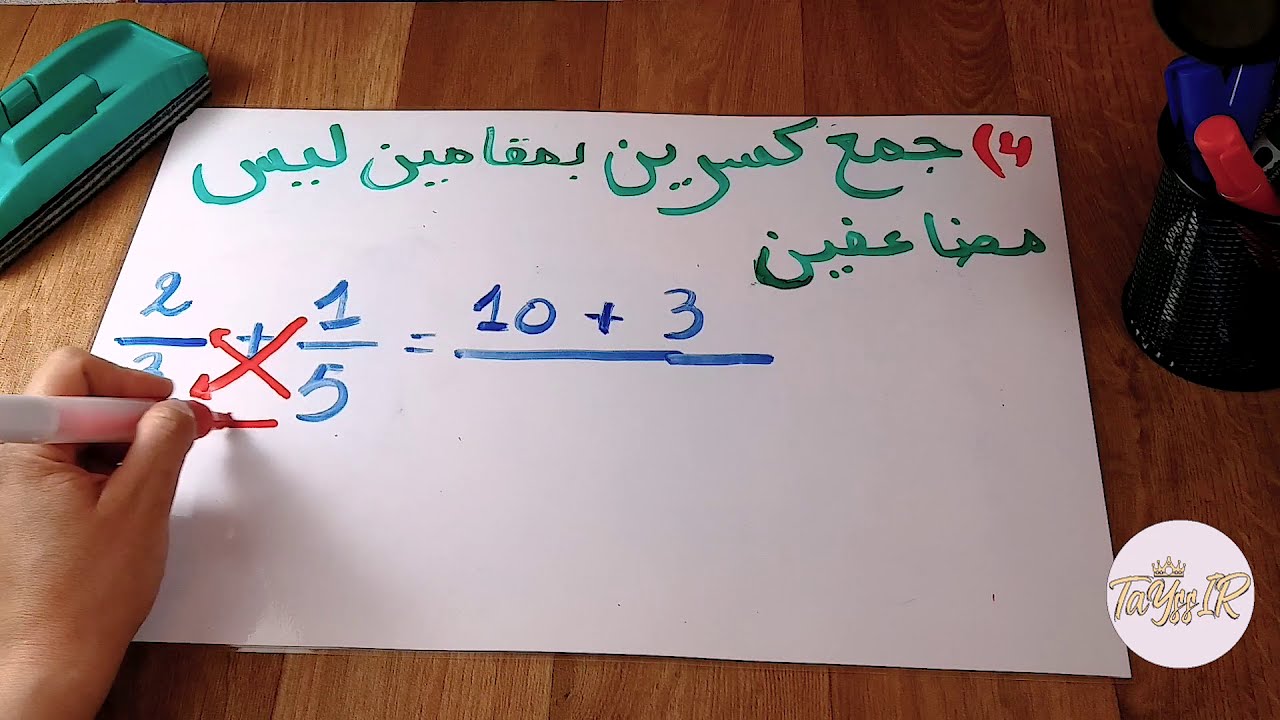 4) جمع كسرين بمقامين ليس
مضاعفين
2/3 + 1/5 = 10 + 3
TaYssIR